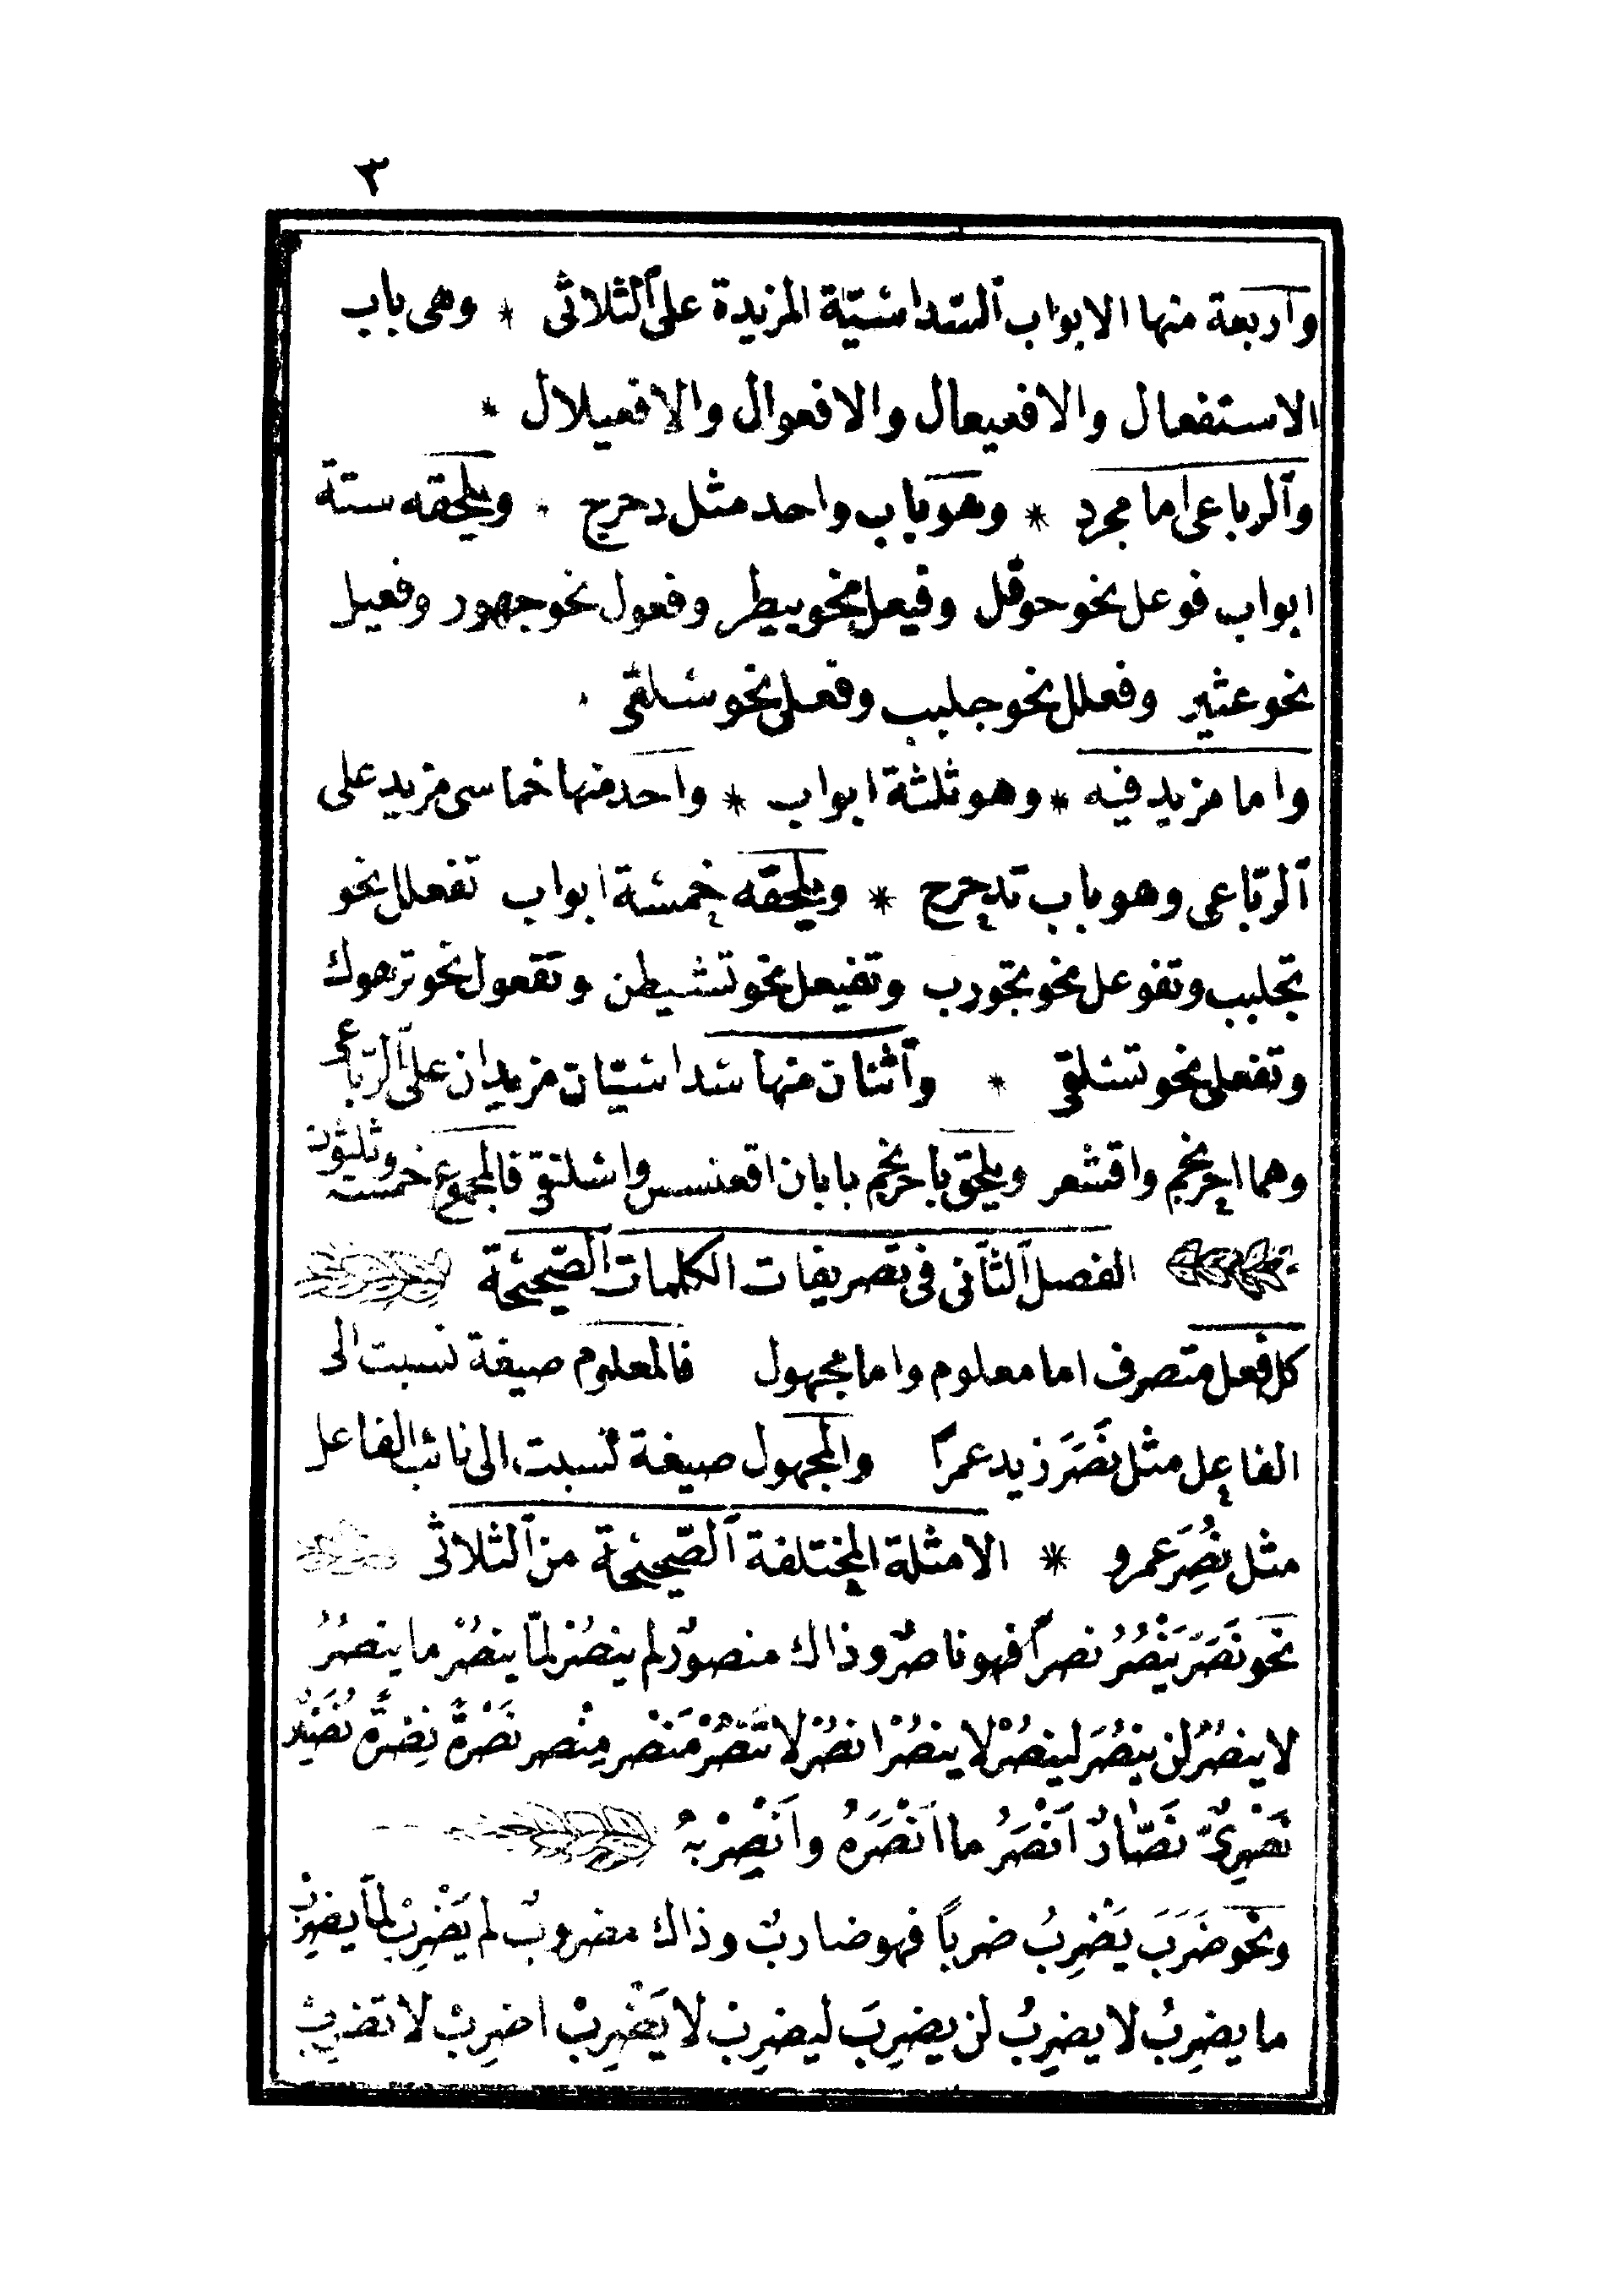 ٣
واربعة منها الابواب السداسيّة المزيدة على الثلاثى * وهى باب
الاستفعال والافعيعال والافعوال والافعيلال *
والرباعى اما مجرد * وهو باب واحد مثل دحرج * ويلحقه ستة
ابواب فوعل نحو حوقل وفيعل نحو بيطر وفعول نحو جهور وفعيل
نحو عثير وفعلل نحو جلبب وفعلى نحو سلقى
واما مزيد فيه * وهو ثلثة ابواب * واحد منها خماسى مزيد على
الرّباعى وهو باب تدحرج * ويلحقه خمسة ابواب تفعلل نحو
تجلبب وتفوعل نحو تجورب وتفيعل نحو تشيطن وتفعول نحو ترهوك
وتفعلى نحو تسلقى * واثنان منها سداسيّان مزيدان على الرّباعى
وهما احرنجم واقشعر ويلحق باحرنجم بابان اقعنسس واسلنقى فالمجموع خمسة وثلثون
الفصل الثانى فى تصريفات الكلمات الصّحيحة
كل فعل متصرف اما معلوم واما مجهول فالمعلوم صيغة نسبت الى
الفاعل مثل نَصَرَ زيد عمرًا والمجهول صيغة نسبت الى نائب الفاعل
مثل نُصِرَ عمرو * الامثلة المختلفة الصّحيحة من الثلاثى
نحو نَصَرَ يَنْصُرُ نصرًا فهو ناصرٌ وذاك منصورٌ لم ينصُرْ لمّا ينصُرْ ما ينصُرُ
لا ينصُرُ لن ينصُرَ لينصُرْ لا ينصُرْ انصُرْ لا تَنْصُرْ مَنْصَر مِنْصر نَصْرَةً نِصْرَةً نُصَيْرٌ
نَصْرِىٌّ نَصَّارٌ اَنْصَرُ ما اَنْصَرَهُ واَنْصِرْ بِهِ
ونحو ضَرَبَ يَضْرِبُ ضربًا فهو ضاربٌ وذاك مضروبٌ لم يَضْرِبْ لمّا يضرِبْ
ما يضرِبُ لا يضرِبُ لن يضرِبَ ليضرِبْ لا يَضْرِبْ اضرِبْ لا تضرِبْ